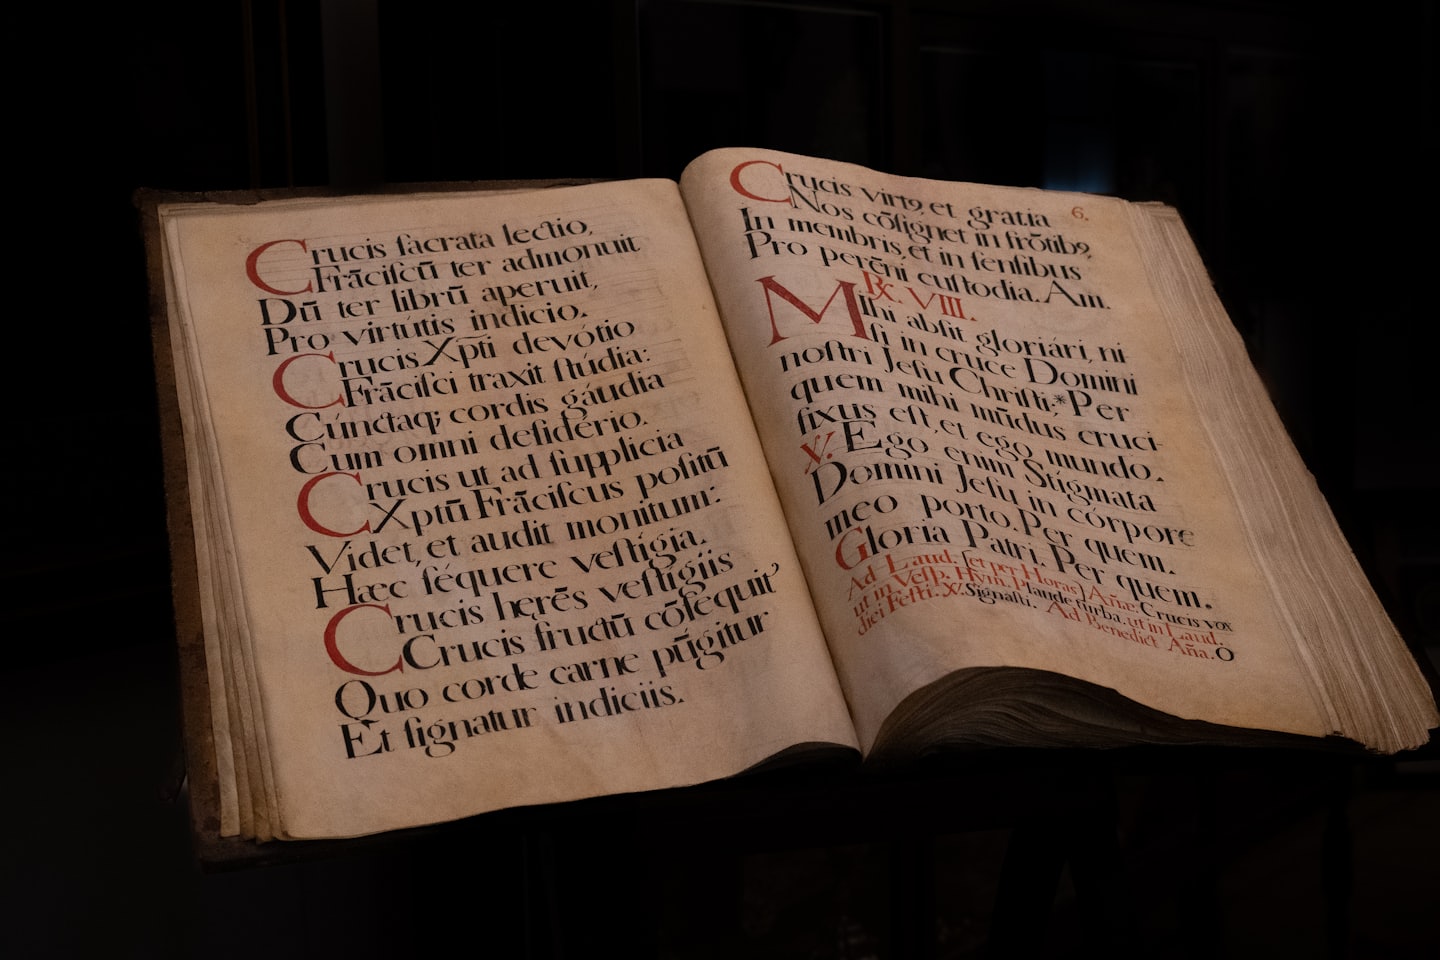 Crucis ſacrata lectio,
Frāciſcū ter admonuit
Dū ter librū aperuit,
Pro virtútis indício.
Crucis Xp̄ti devótio
Frāciſci traxit ſtúdia:
Cúnctaq; cordis gáudia
Cum omni deſidério.
Crucis ut ad ſupplícia
Xptū Frāciſcus poſitū
Videt, et audit monitum:
Hæc ſéquere veſtígia.
Crucis herēs veſtigiis
Crucis fructū cōſequit
Quo corde carne pūgitur
Et ſignatur indíciis.
6.
Crucis virtꝰ, et gratia
Nos cōſignet in frōtibꝰ,
In membris, et in ſenſibus
Pro perēni cuſtodia. Am.
℞. VIII.
Mihi abſit gloriári, ni
ſi in cruce Domini
noſtri Jeſu Chriſti: * Per
quem mihi mūdus cruci-
fixus eſt, et ego mundo.
℣. Ego enim Stígmata
Domini Jeſu in córpore
meo porto. Per quem.
Gloria Patri. Per quem.
Ad Laud. (et per Horas) Añæ: Crucis vox
ut in Veſp. Hym. Plaude turba. ut in Laud.
dici Feſti: ℣. Signaſti. Ad Benedict Aña. O